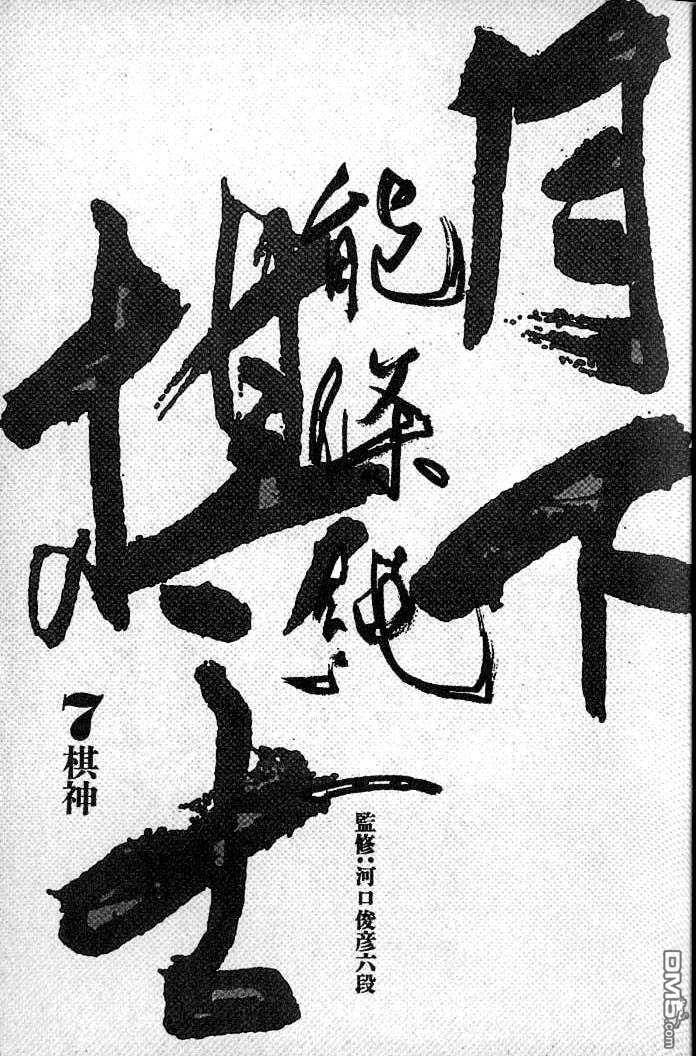 月下
棋士
能條純一
7 棋神
監修:河口俊彦六段
DM5.com